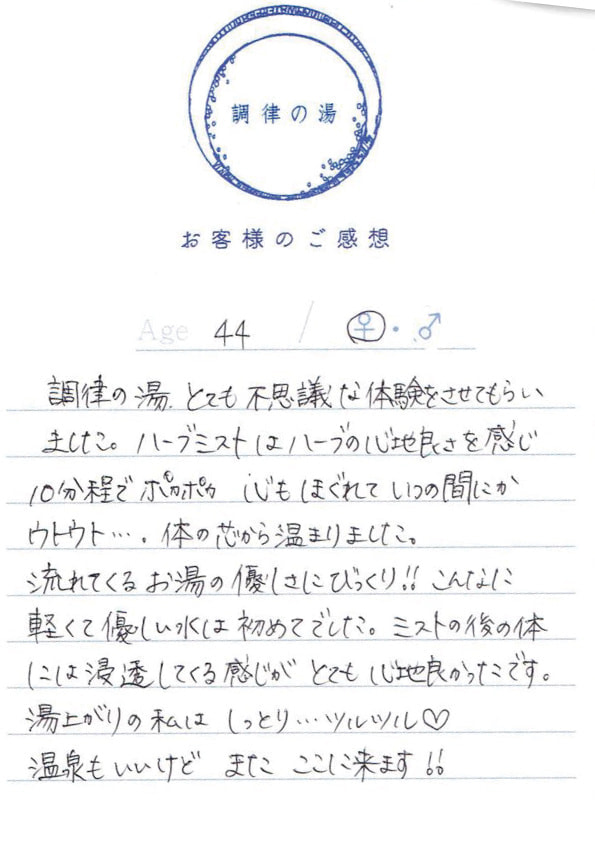 調律の湯
お客様のご感想
Age 44 / ♀・♂
調律の湯、とても不思議な体験をさせてもらい
ました。ハーブミストはハーブの心地良さを感じ
10分程でポカポカ 心もほぐれていつの間にか
ウトウト…。体の芯から温まりました。
流れてくるお湯の優しさにびっくり!! こんなに
軽くて優しい水は初めてでした。ミストの後の体
には浸透してくる感じがとても心地良かったです。
湯上がりの私はしっとり…ツルツル♡
温泉もいいけど またここに来ます!!